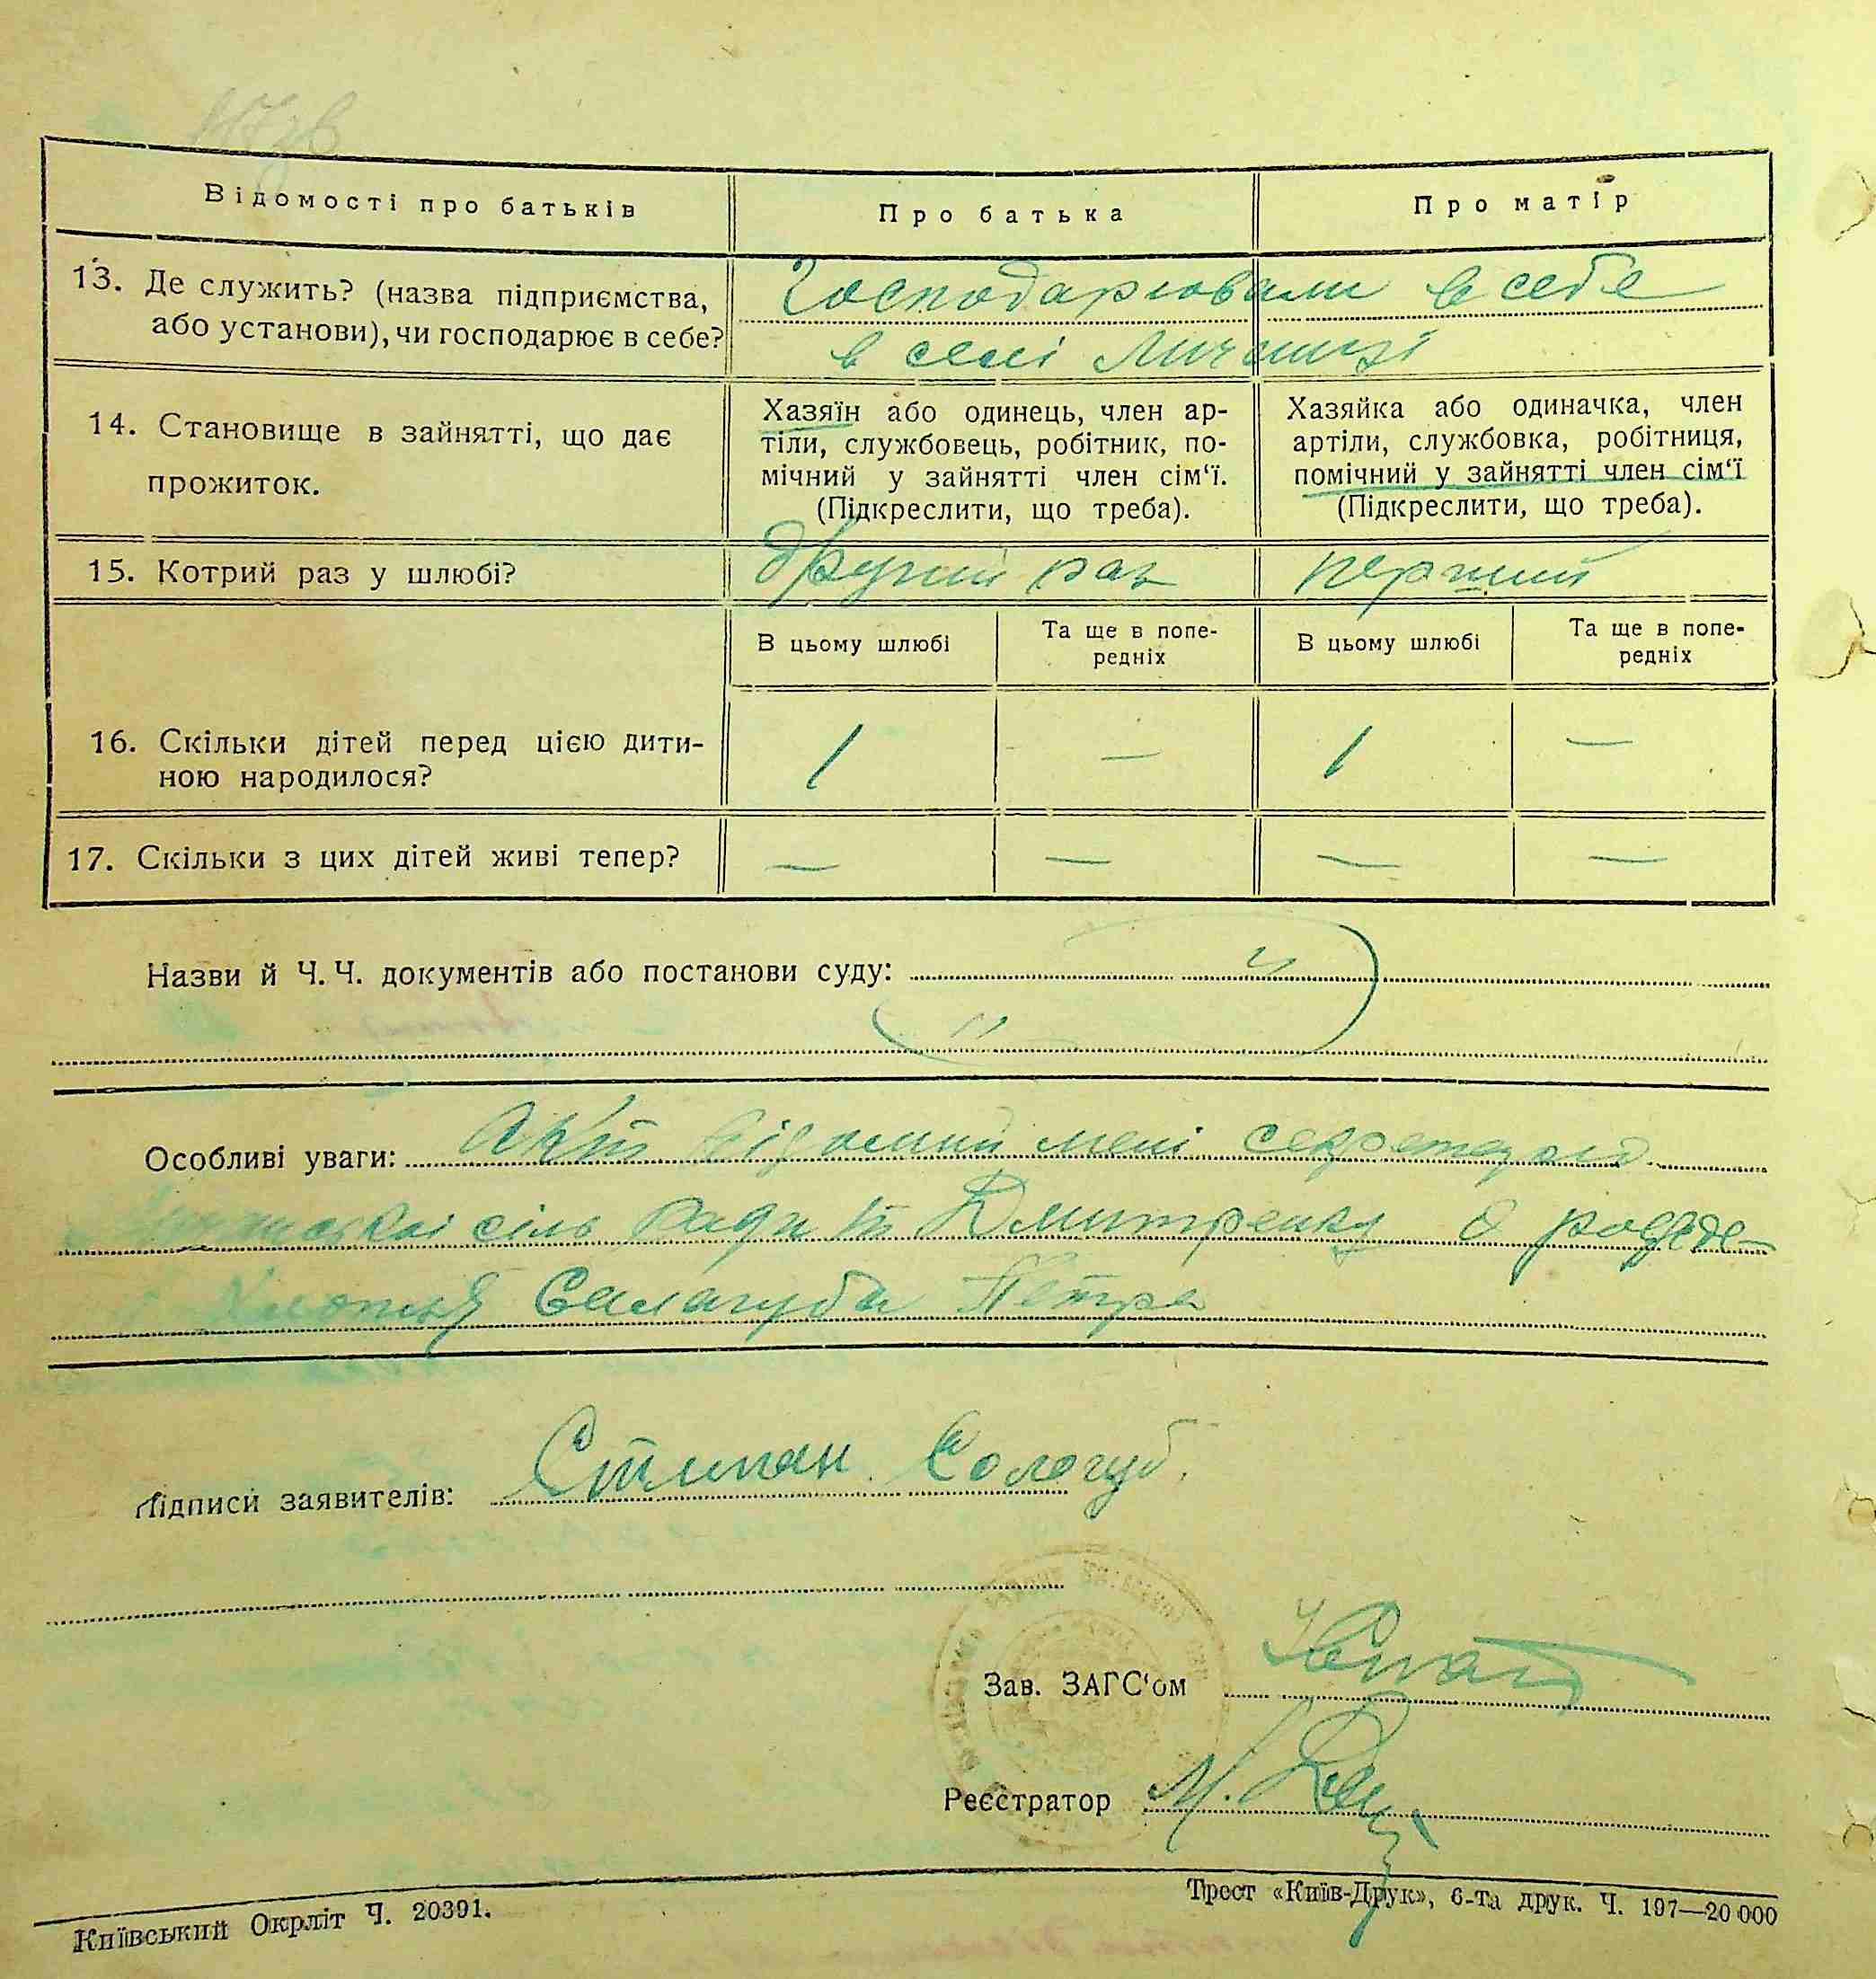 Відомості про батьків
Про батька
Про матір
13. Де служить? (назва підприємства,
або установи), чи господарює в себе?
Господарювали в себе
в селі
14. Становище в зайнятті, що дає
прожиток.
Хазяїн або одинець, член ар-
тіли, службовець, робітник, по-
мічний у зайнятті член сім‘ї.
(Підкреслити, що треба).
Хазяйка або одиначка, член
артіли, службовка, робітниця,
помічний у зайнятті член сім‘ї
(Підкреслити, що треба).
15. Котрий раз у шлюбі?
другий раз
перший
В цьому шлюбі
Та ще в попе-
редніх
В цьому шлюбі
Та ще в попе-
редніх
16. Скільки дітей перед цією дити-
ною народилося?
1 — 1 —
17. Скільки з цих дітей живі тепер?
— — — —
Назви й Ч. Ч. документів або постанови суду:
Особливі уваги: Акт відомий мені секретарю
сіль Ради Дмитренку о рожде-
Салагуба Петра
Підписи заявителів: Стипан Сологуб.
Зав. ЗАГС‘ом
Реєстратор М.
Київський Окрліт Ч. 20391.
Трест «Київ-Друк», 6-та друк. Ч. 197—20 000